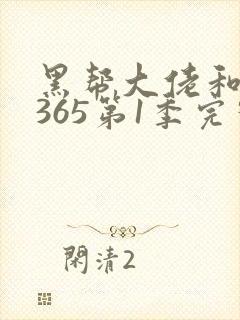 黑帮大佬和
365第1季完
閑清2